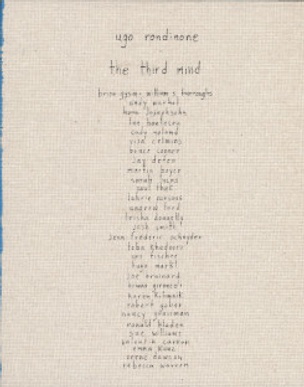 ugo rondinone
the third mind
brion gysin - william s. burroughs
andy warhol
hans josephsohn
lee bontecou
cady noland
vija celmins
bruce conner
jay defeo
martin boyce
sarah lucas
paul thek
valerie
nancy grossman
ronald bladen
sue williams
valentin carron
emma kunz
verne dawson
rebecca warren
joe brainard
bruno gironcoli
karen kilimnik
robert gober
laurie parsons
trisha donnelly
josh smith
jean-frédéric schnyder
toba khedoori
urs fischer
hugo markl